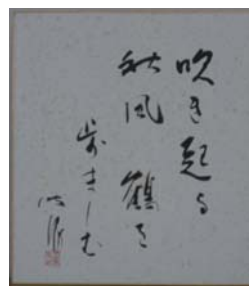 吹き起る
秋風鶴を
歩ましむ
波郷